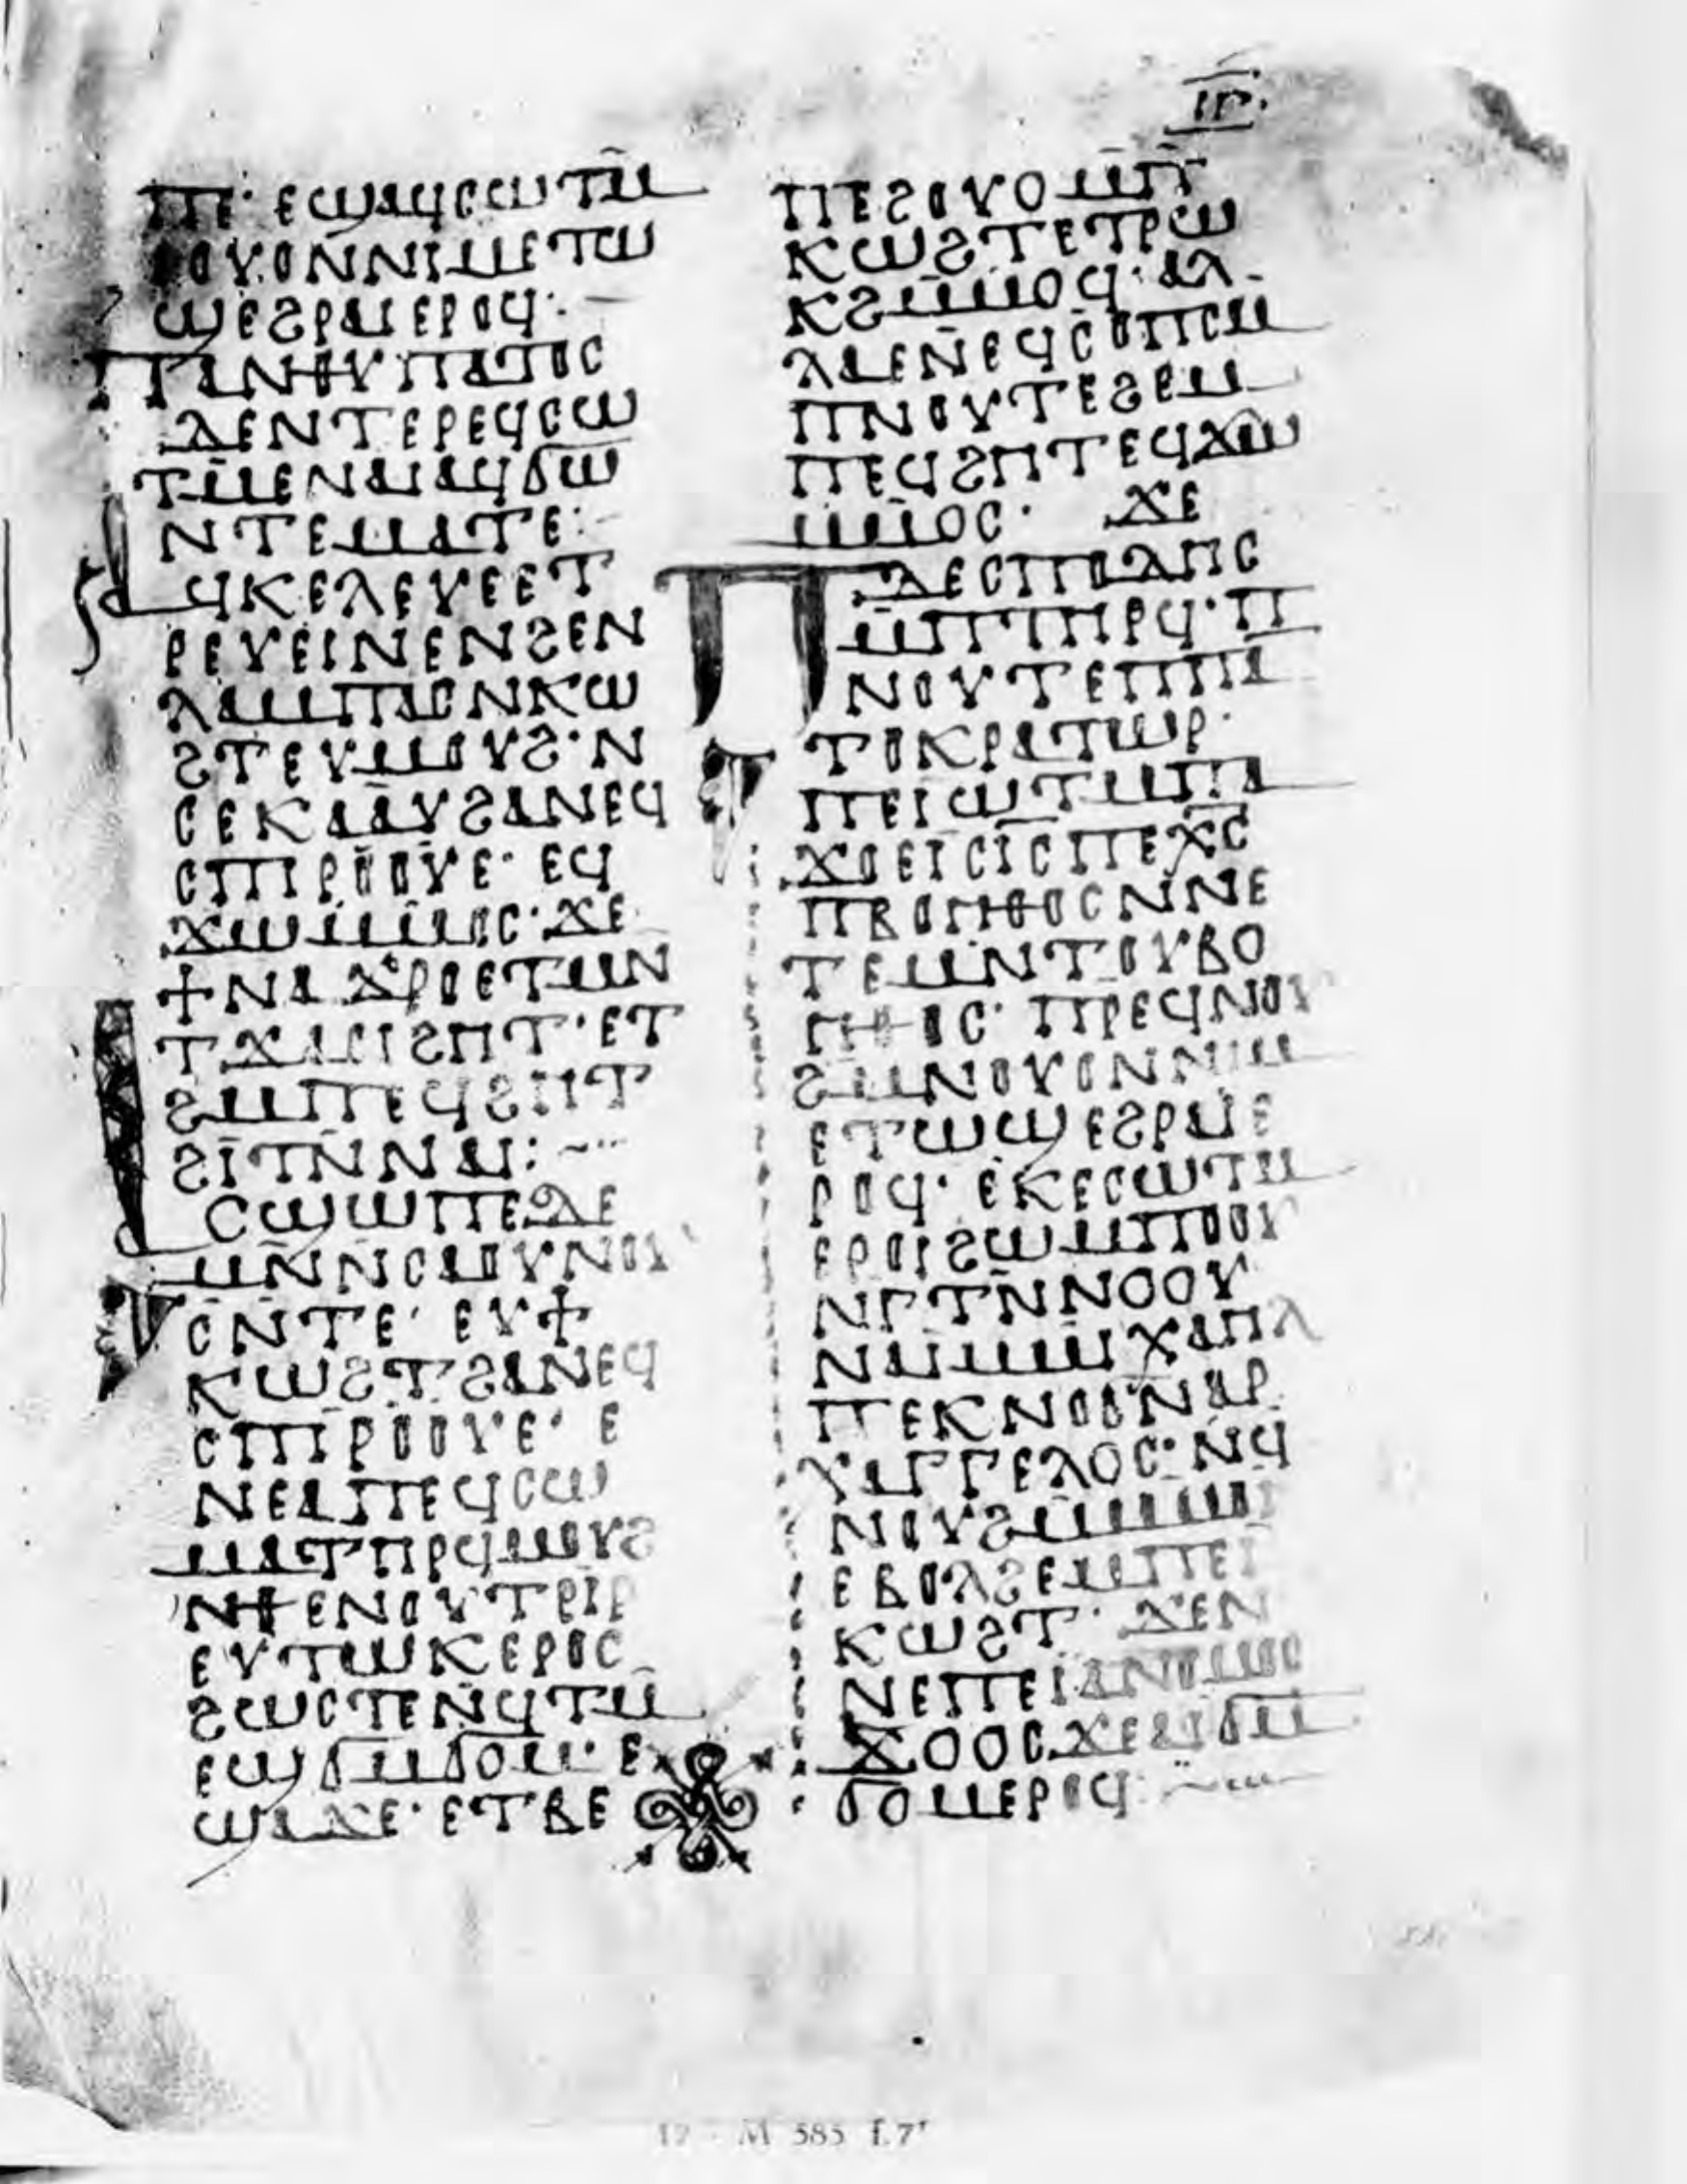 ⲓⲅ·
ⲡⲉ· ⲉϣⲁϥⲥⲱⲧⲙ̄
ⲟⲩⲟⲛⲛⲓⲙⲉⲧⲱ
ϣⲉϩⲣⲁⲓⲉⲣⲟϥ:—
ⲡⲁⲛⲑⲩⲡⲁⲧⲟⲥ
ⲇⲉⲛⲧⲉⲣⲉϥⲥⲱ
ⲧⲙ̄ⲉⲛⲁⲓⲁϥϭⲱ
ⲛⲧⲉⲙⲁⲧⲉ:—
ⲁϥⲕⲉⲗⲉⲩⲉⲉⲧ
ⲣⲉⲩⲉⲓⲛⲉⲛϩⲉⲛ
ⲗⲁⲙⲡⲁⲥⲛⲕⲱ
ϩⲧⲉⲩⲙⲟⲩϩ·ⲛ
ⲥⲉⲕⲁⲁⲩϩⲁⲛⲉϥ
ⲥⲡⲓⲣⲟⲟⲩⲉ· ⲉϥ
ϫⲱⲙ̄ⲙⲟⲥ·ϫⲉ
ϯⲛⲁϫⲣⲟⲉⲧⲙⲛ
ⲧϫⲁⲥⲓϩⲏⲧ·ⲉⲧ
ϩⲙ̄ⲡⲉϥϩⲏⲧ
ϩⲓⲧⲛ̄ⲛⲁⲓ:~
ⲁⲥϣⲱⲡⲉⲇⲉ
ⲙⲛ̄ⲛ̄ⲥⲁⲟⲩⲛⲟⲩ
ⲥⲛ̄ⲧⲉ· ⲉⲩϯ
ⲕⲱϩⲧϩⲁⲛⲉϥ
ⲥⲡⲓⲣⲟⲟⲩⲉ· ⲉ
ⲛⲉⲁⲡⲉϥⲥⲱ
ⲙⲁⲧⲏⲣϥⲙⲟⲩϩ
ⲛⲑⲉⲛⲟⲩⲧⲣⲓⲣ
ⲉⲩⲧⲱⲕⲉⲣⲟⲥ
ϩⲱⲥⲧⲉⲛϥⲧⲙ̄
ⲉϣϭⲙ̄ϭⲟⲙ· ⲉ
ϣⲁϫⲉ· ⲉⲧⲃⲉ
ⲡⲉϩⲟⲩⲟⲙ̄ⲡ
ⲕⲱϩⲧⲉⲧⲣⲱ
ⲕϩⲙ̄ⲙⲟϥ·ⲁⲗ
ⲗⲁⲉⲛⲉϥⲥⲟⲡⲥⲙ̄
ⲡⲛⲟⲩⲧⲉϩⲉⲙ̄
ⲡⲉϥϩⲏⲧⲉϥϫⲱ
ⲙ̄ⲙⲟⲥ· ϫⲉ
ⲡⲇⲉⲥⲡⲟⲇⲏⲥ
ⲙ̄ⲡⲧⲏⲣϥ·ⲡ
ⲛⲟⲩⲧⲉⲡⲡⲁ
ⲧⲟⲕⲣⲁⲧⲱⲣ·
ⲡⲉⲓⲱⲧⲙ̄ⲡⲁ
ϫⲟⲉⲓⲥⲓ̄ⲥ̄ⲡⲉⲭ̄ⲥ̄
ⲡⲃⲟⲏⲑⲟⲥⲛⲛⲉ
ⲧⲉⲙⲛⲧⲟⲩⲃⲟ
ⲏⲑⲟⲥ· ⲡⲣⲉϥⲛⲟⲩ
ϩⲙ̄ⲛⲟⲩⲟⲛⲛⲓⲙ
ⲉⲧⲱϣⲉϩⲣⲁⲓⲉ
ⲣⲟϥ· ⲉⲕⲉⲥⲱⲧⲙ̄
ⲉⲣⲟⲓϩⲱⲙ̄ⲡⲟⲟⲩ
ⲛⲅⲧⲛ̄ⲛⲟⲟⲩ
ⲛⲁⲓⲙ̄ⲙⲓⲭⲁⲏⲗ
ⲡⲉⲕⲛⲟϭⲛⲁⲣ
ⲭⲁⲅⲅⲉⲗⲟⲥ·ⲛϥ
ⲛⲟⲩϩⲙ̄ⲙⲙⲟⲓ
ⲉⲃⲟⲗϩⲉⲙⲡⲉⲓ
ⲕⲱϩⲧ· ϫⲉⲛ
ⲛⲉⲡⲉⲓⲁⲛⲟⲙⲟⲥ
ϫⲟⲟⲥϫⲉⲁⲓϭⲙ̄
ϭⲟⲙⲉⲣⲟϥ:~
12 · M 585 f.7ʳ